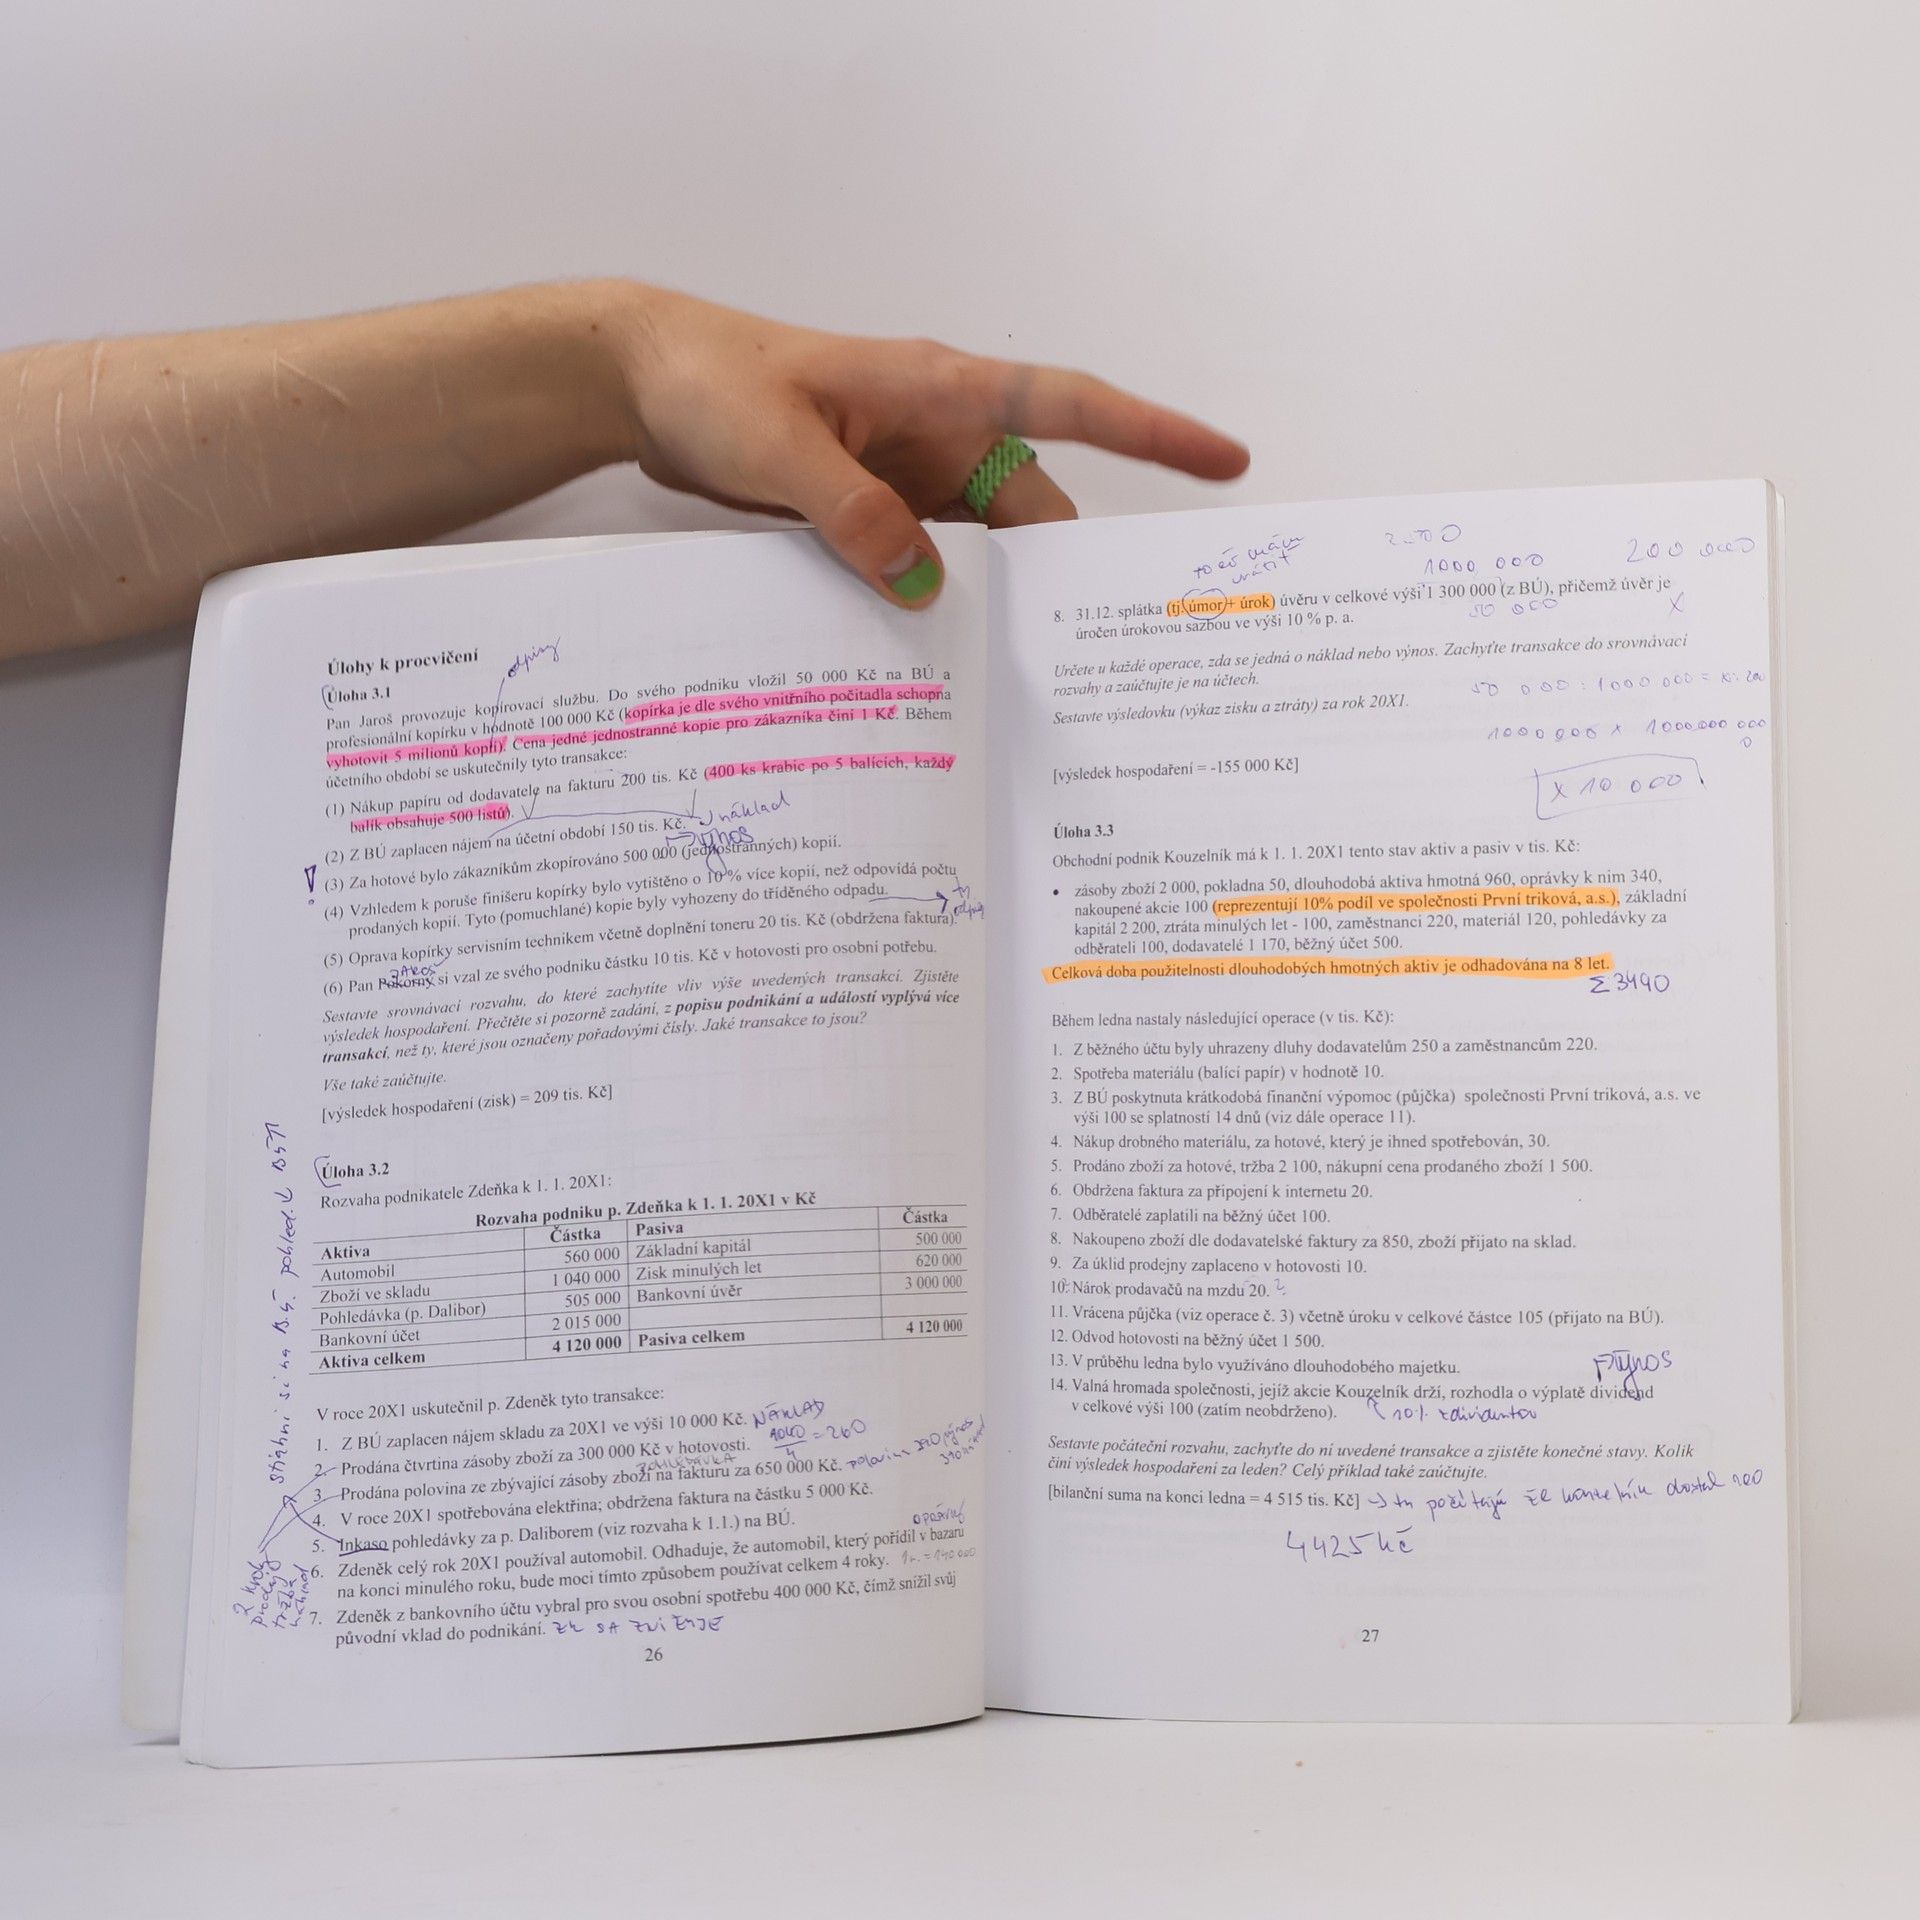 odpisy
Úlohy k procvičení
Úloha 3.1
Pan Jaroš provozuje kopírovací službu. Do svého podniku vložil 50 000 Kč na BÚ a
profesionální kopírku v hodnotě 100 000 Kč (kopírka je dle svého vnitřního počitadla schopna
vyhotovit 5 milionů kopií). Cena jedné jednostranné kopie pro zákazníka činí 1 Kč. Během
účetního období se uskutečnily tyto transakce:
(1) Nákup papíru od dodavatele na fakturu 200 tis. Kč (400 ks krabic po 5 balících, každý
balík obsahuje 500 listů).
náklad
(2) Z BÚ zaplacen nájem na účetní období 150 tis. Kč.
výnos
(3) Za hotové bylo zákazníkům zkopírováno 500 000 (jednostranných) kopií.
(4) Vzhledem k poruše finišeru kopírky bylo vytištěno o 10 % více kopií, než odpovídá počtu
prodaných kopií. Tyto (pomuchlané) kopie byly vyhozeny do tříděného odpadu.
(5) Oprava kopírky servisním technikem včetně doplnění toneru 20 tis. Kč (obdržena faktura).
(6) Pan Pokorný si vzal ze svého podniku částku 10 tis. Kč v hotovosti pro osobní potřebu.
Sestavte srovnávací rozvahu, do které zachytíte vliv výše uvedených transakcí. Zjistěte
výsledek hospodaření. Přečtěte si pozorně zadání, z popisu podnikání a událostí vyplývá více
transakcí, než ty, které jsou označeny pořadovými čísly. Jaké transakce to jsou?
Vše také zaúčtujte.
[výsledek hospodaření (zisk) = 209 tis. Kč]
Úloha 3.2
Rozvaha podnikatele Zdeňka k 1. 1. 20X1:
Rozvaha podniku p. Zdeňka k 1. 1. 20X1 v Kč
Aktiva Částka Pasiva Částka
Automobil 560 000 Základní kapitál 500 000
Zboží ve skladu 1 040 000 Zisk minulých let 620 000
Pohledávka (p. Dalibor) 505 000 Bankovní úvěr 3 000 000
Bankovní účet 2 015 000
Aktiva celkem 4 120 000 Pasiva celkem 4 120 000
V roce 20X1 uskutečnil p. Zdeněk tyto transakce:
1. Z BÚ zaplacen nájem skladu za 20X1 ve výši 10 000 Kč. NÁKLAD
2. Prodána čtvrtina zásoby zboží za 300 000 Kč v hotovosti. 1040/4 = 260
3. Prodána polovina ze zbývající zásoby zboží na fakturu za 650 000 Kč. polovina 390
4. V roce 20X1 spotřebována elektřina; obdržena faktura na částku 5 000 Kč.
5. Inkaso pohledávky za p. Daliborem (viz rozvaha k 1.1.) na BÚ.
6. Zdeněk celý rok 20X1 používal automobil. Odhaduje, že automobil, který pořídil v bazaru
na konci minulého roku, bude moci tímto způsobem používat celkem 4 roky.
7. Zdeněk z bankovního účtu vybral pro svou osobní spotřebu 400 000 Kč, čímž snížil svůj
původní vklad do podnikání. ZK SA ZNIŽUJE
26
1000 000
200 000
8. 31.12. splátka (tj. úmor + úrok) úvěru v celkové výši 1 300 000 (z BÚ), přičemž úvěr je
úročen úrokovou sazbou ve výši 10 % p. a.
Určete u každé operace, zda se jedná o náklad nebo výnos. Zachyťte transakce do srovnávací
rozvahy a zaúčtujte je na účtech.
Sestavte výsledovku (výkaz zisku a ztráty) za rok 20X1.
[výsledek hospodaření = -155 000 Kč]
x 10 000
Úloha 3.3
Obchodní podnik Kouzelník má k 1. 1. 20X1 tento stav aktiv a pasiv v tis. Kč:
• zásoby zboží 2 000, pokladna 50, dlouhodobá aktiva hmotná 960, oprávky k nim 340,
nakoupené akcie 100 (reprezentují 10% podíl ve společnosti První triková, a.s.), základní
kapitál 2 200, ztráta minulých let - 100, zaměstnanci 220, materiál 120, pohledávky za
odběrateli 100, dodavatelé 1 170, běžný účet 500.
Celková doba použitelnosti dlouhodobých hmotných aktiv je odhadována na 8 let.
Σ 3490
Během ledna nastaly následující operace (v tis. Kč):
1. Z běžného účtu byly uhrazeny dluhy dodavatelům 250 a zaměstnancům 220.
2. Spotřeba materiálu (balící papír) v hodnotě 10.
3. Z BÚ poskytnuta krátkodobá finanční výpomoc (půjčka) společnosti První triková, a.s. ve
výši 100 se splatností 14 dnů (viz dále operace 11).
4. Nákup drobného materiálu, za hotové, který je ihned spotřebován, 30.
5. Prodáno zboží za hotové, tržba 2 100, nákupní cena prodaného zboží 1 500.
6. Obdržena faktura za připojení k internetu 20.
7. Odběratelé zaplatili na běžný účet 100.
8. Nakoupeno zboží dle dodavatelské faktury za 850, zboží přijato na sklad.
9. Za úklid prodejny zaplaceno v hotovosti 10.
10. Nárok prodavačů na mzdu 20. ?
11. Vrácena půjčka (viz operace č. 3) včetně úroku v celkové částce 105 (přijato na BÚ).
12. Odvod hotovosti na běžný účet 1 500.
13. V průběhu ledna bylo využíváno dlouhodobého majetku.
výnos
14. Valná hromada společnosti, jejíž akcie Kouzelník drží, rozhodla o výplatě dividend
v celkové výši 100 (zatím neobdrženo). 10% z dividentov
Sestavte počáteční rozvahu, zachyťte do ní uvedené transakce a zjistěte konečné stavy. Kolik
činí výsledek hospodaření za leden? Celý příklad také zaúčtujte.
[bilanční suma na konci ledna = 4 515 tis. Kč] → tu počítajú že kouzelník dostal 100
4425 Kč
27